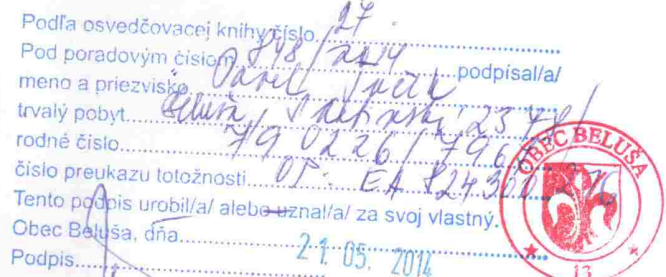 Podľa osvedčovacej knihy číslo 27.
Pod poradovým číslom 848/2014 podpísal/a/
meno a priezvisko Pavel
trvalý pobyt Beluša,
rodné číslo 790226/796
číslo preukazu totožnosti OP. EA 824360
Tento podpis urobil/a/ alebo uznal/a/ za svoj vlastný.
Obec Beluša, dňa 21. 05. 2014
Podpis
OBEC BELUŠA
13